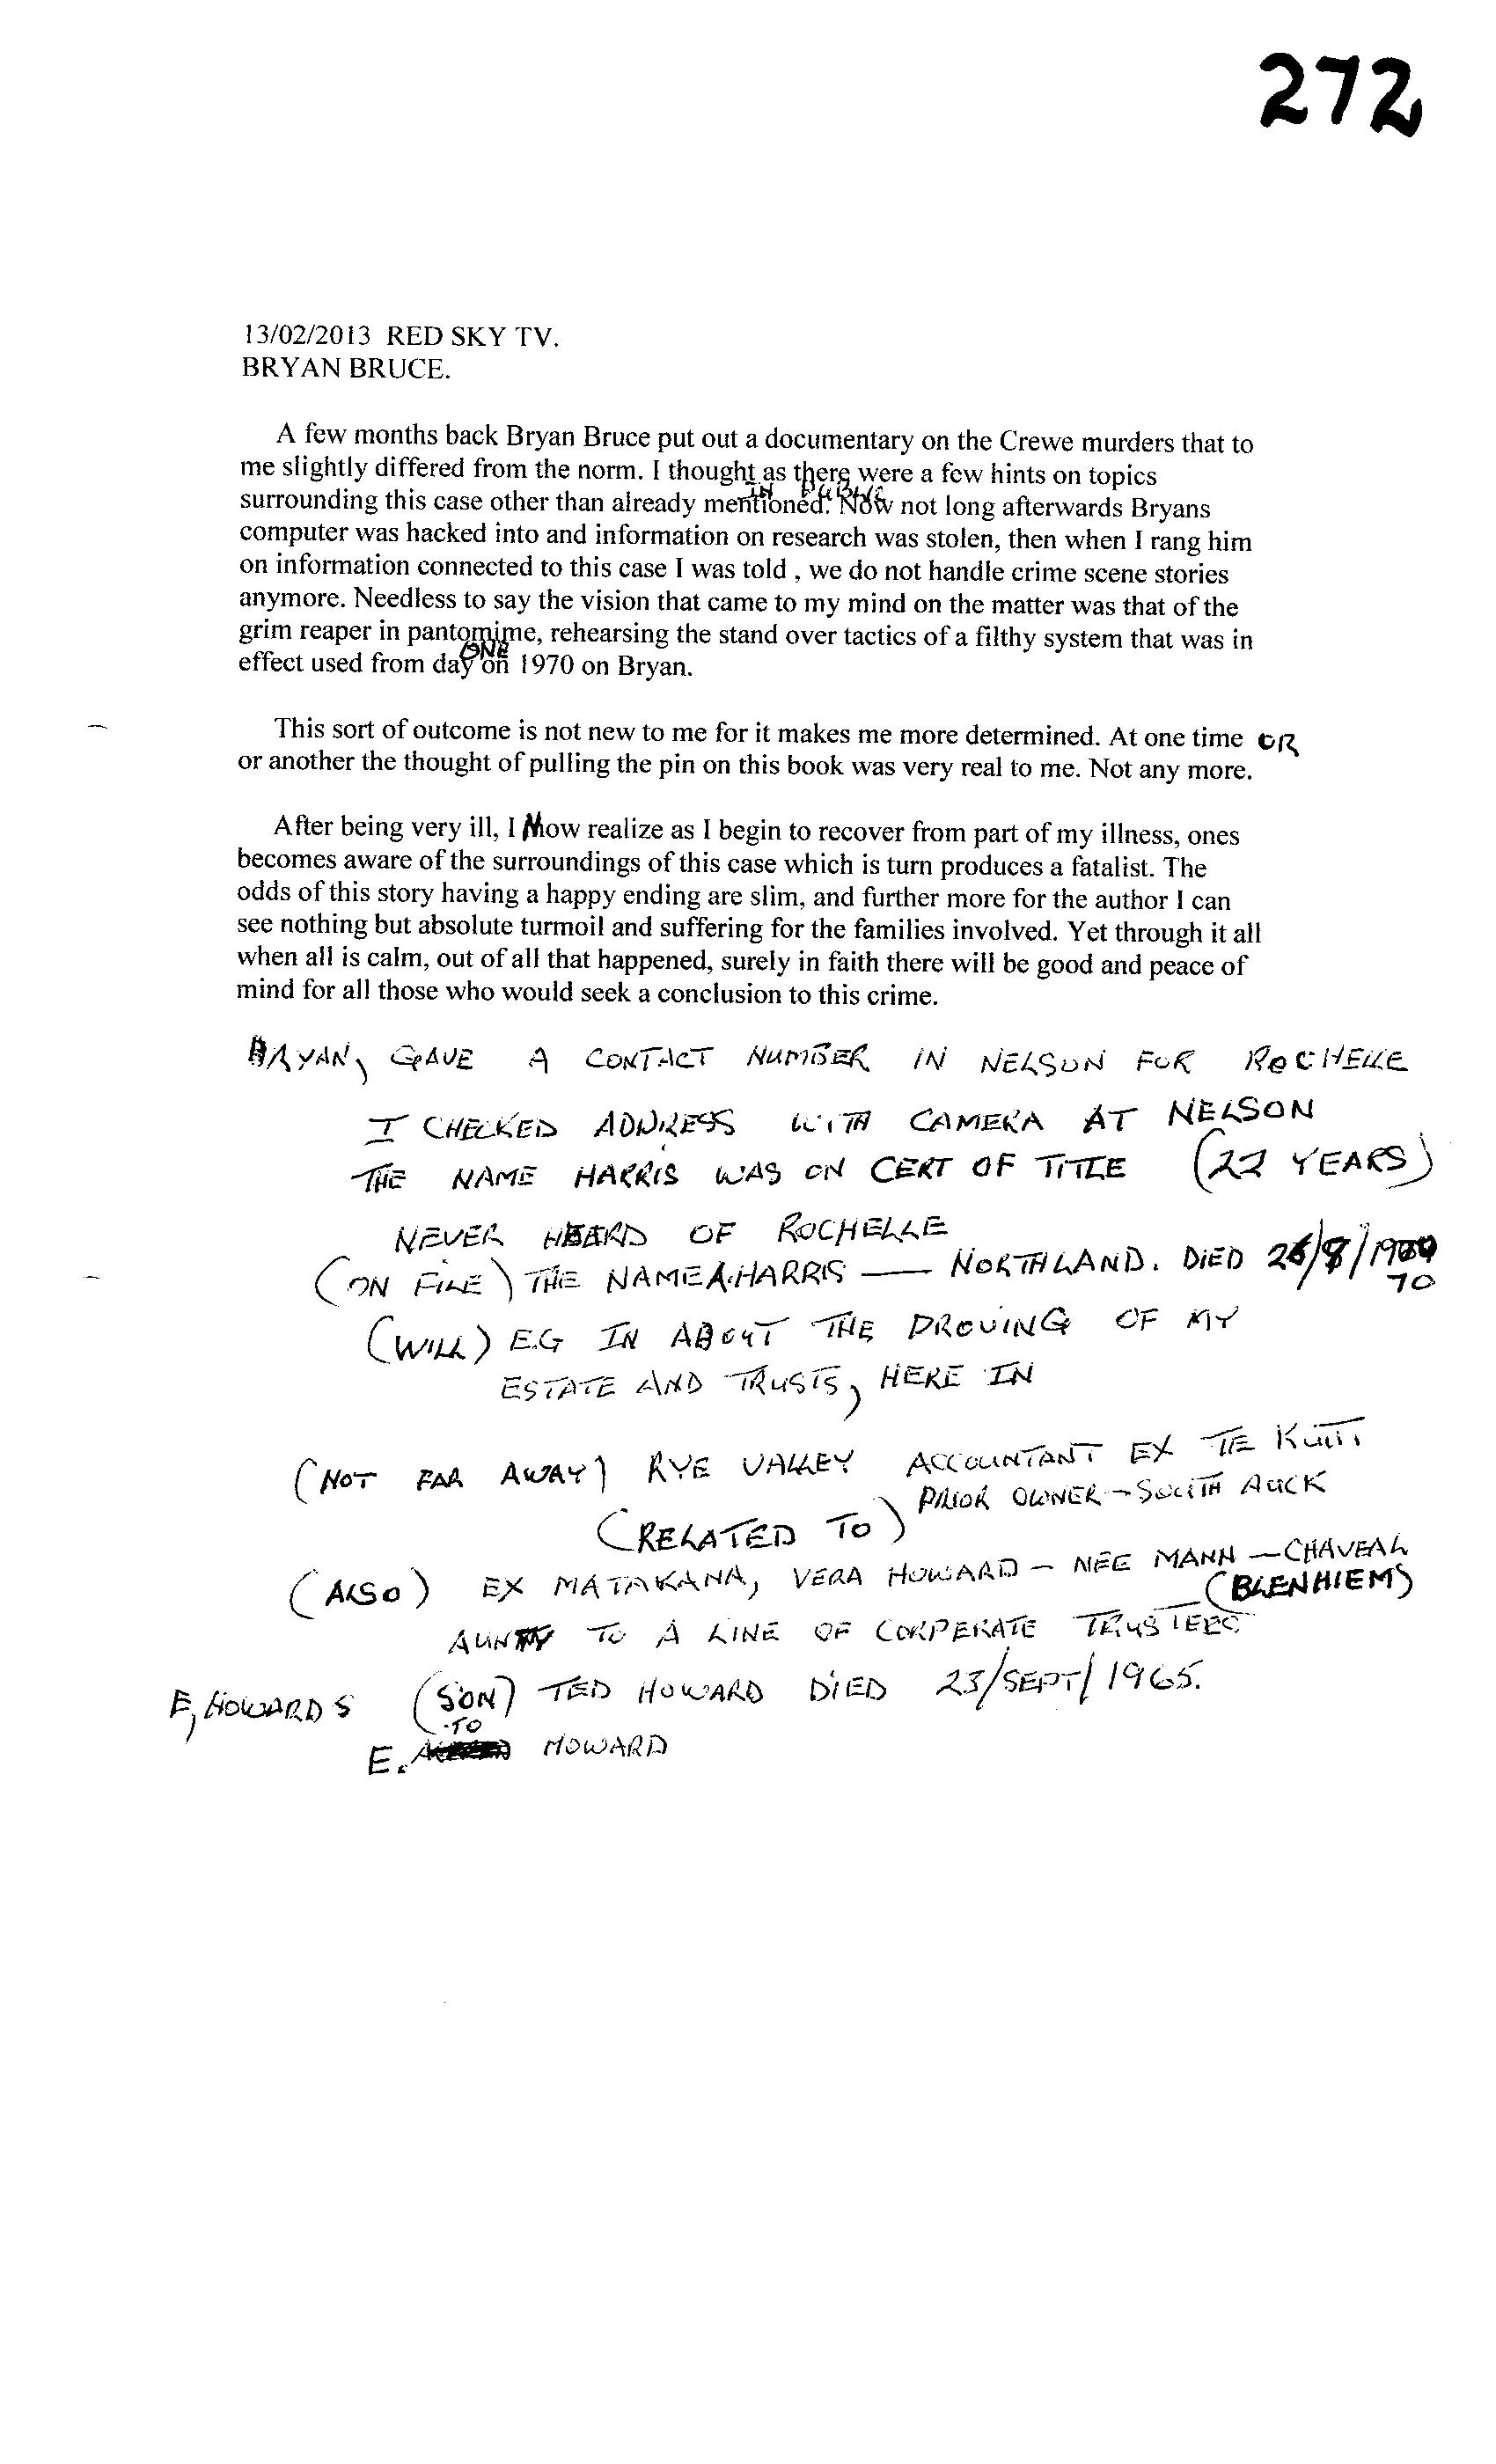 272
13/02/2013 RED SKY TV.
BRYAN BRUCE.
A few months back Bryan Bruce put out a documentary on the Crewe murders that to
me slightly differed from the norm. I thought as there were a few hints on topics
IN PUBLIC
surrounding this case other than already mentioned. Now not long afterwards Bryans
computer was hacked into and information on research was stolen, then when I rang him
on information connected to this case I was told , we do not handle crime scene stories
anymore. Needless to say the vision that came to my mind on the matter was that of the
grim reaper in pantomime, rehearsing the stand over tactics of a filthy system that was in
ONE
effect used from day on 1970 on Bryan.
This sort of outcome is not new to me for it makes me more determined. At one time OR
or another the thought of pulling the pin on this book was very real to me. Not any more.
After being very ill, I Now realize as I begin to recover from part of my illness, ones
becomes aware of the surroundings of this case which is turn produces a fatalist. The
odds of this story having a happy ending are slim, and further more for the author I can
see nothing but absolute turmoil and suffering for the families involved. Yet through it all
when all is calm, out of all that happened, surely in faith there will be good and peace of
mind for all those who would seek a conclusion to this crime.
BRYAN, GAVE A CONTACT NUMBER IN NELSON FOR ROCHELLE
I CHECKED ADDRESS WITH CAMERA AT NELSON
THE NAME HARRIS WAS ON CERT OF TITLE (22 YEARS)
NEVER HEARD OF ROCHELLE
(ON FILE) THE NAME A.HARRIS — NORTHLAND. DIED 26/8/19
70
(WILL) E.G IN ABOUT THE PROVING OF MY
ESTATE AND TRUSTS, HERE IN
(NOT FAR AWAY) RYE VALLEY ACCOUNTANT EX TE KUITI
PRIOR OWNER - SOUTH AUCK
(RELATED TO)
(ALSO) EX MATAKANA, VERA HOWARD - NEE MANN - CHAVEAL
(BLENHIEM)
AUNTY TO A LINE OF CORPERATE TRUSTEES
E, HOWARDS (SON) TED HOWARD DIED 23/SEPT/1965.
TO
E. HOWARD